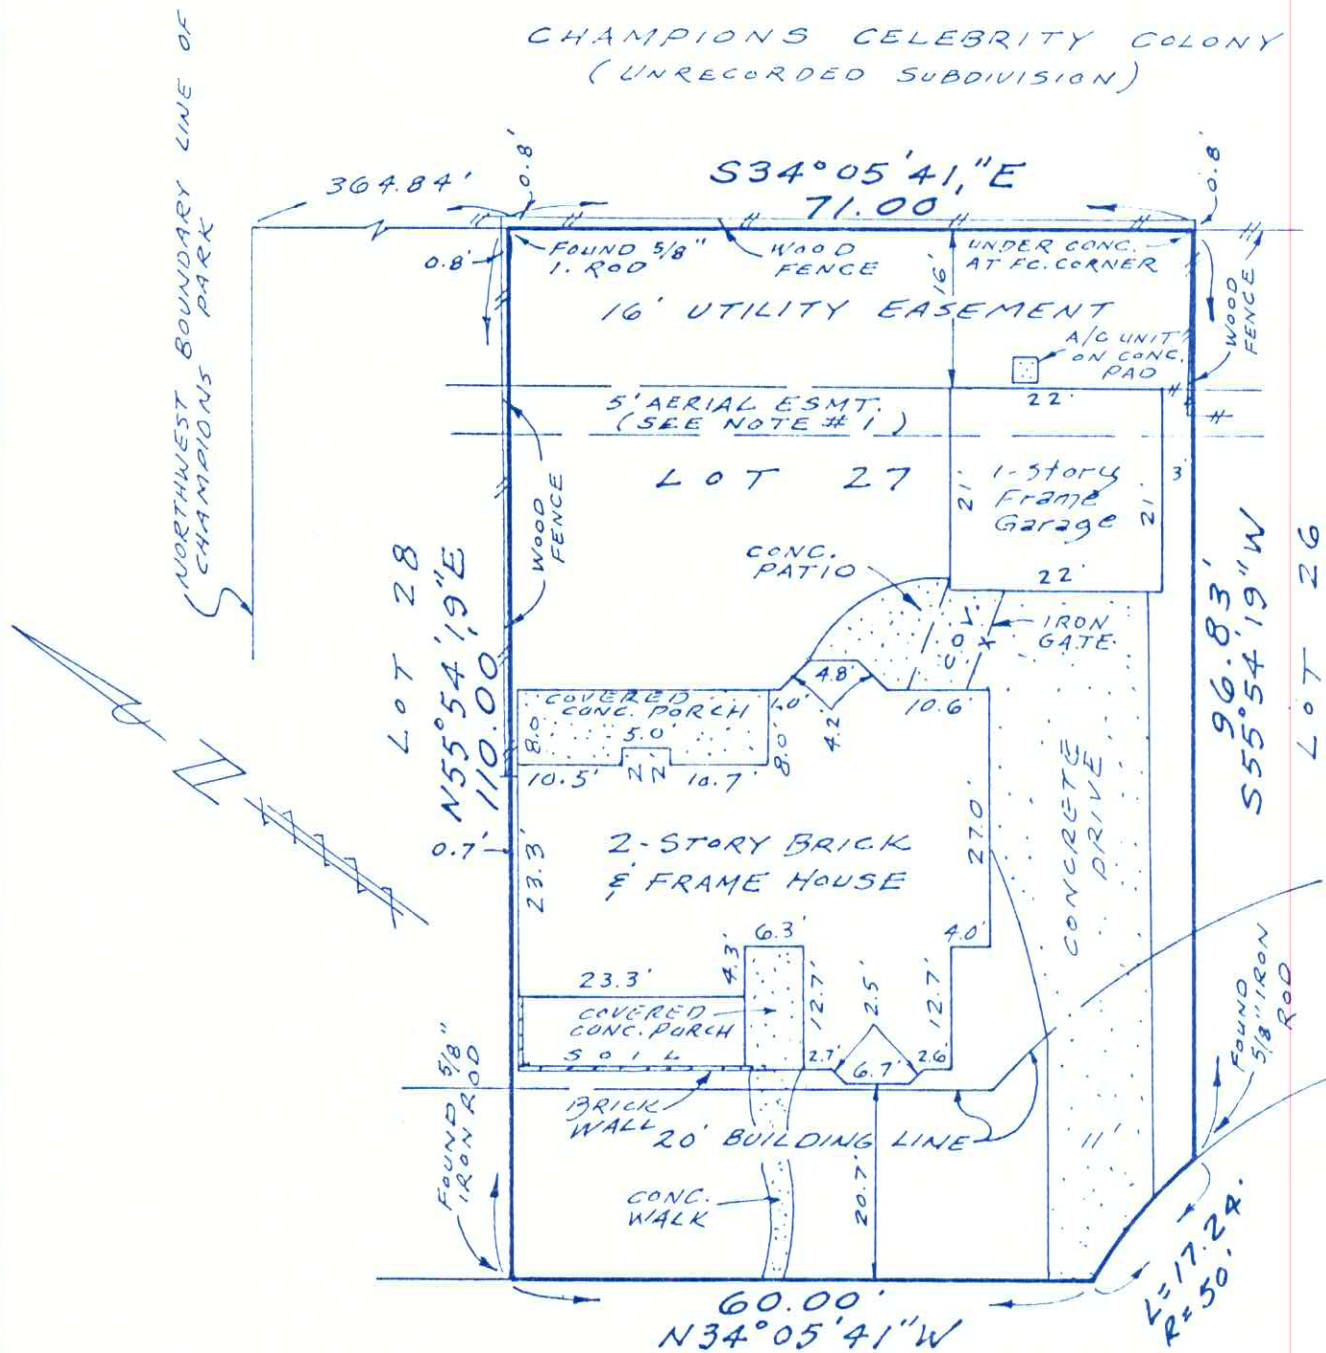 CHAMPIONS CELEBRITY COLONY
(UNRECORDED SUBDIVISION)
NORTHWEST BOUNDARY LINE OF
CHAMPIONS PARK
364.84'
0.8'
S34°05'41"E
71.00'
0.8'
0.8'
FOUND 5/8"
I. ROD
WOOD
FENCE
UNDER CONC.
AT FC. CORNER
16'
WOOD
FENCE
16' UTILITY EASEMENT
A/C UNIT
ON CONC.
PAD
22'
5' AERIAL ESMT.
(SEE NOTE #1)
LOT 27
21'
1-Story
Frame
Garage
21'
3'
22'
WOOD
FENCE
LOT 28
N55°54'19"E
110.00'
96.83'
S55°54'19"W
LOT 26
CONC.
PATIO
COV.
IRON
GATE
COVERED
CONC. PORCH
8.0'
5.0'
10.5'
2'
2'
10.7'
8.0'
1.0'
4.8'
4.2'
10.6'
27.0'
0.7'
23.3'
2-STORY BRICK
& FRAME HOUSE
CONCRETE
DRIVE
6.3'
4.0'
4.3'
23.3'
12.7'
2.5'
12.7'
COVERED
CONC. PORCH
SOIL
2.7'
6.7'
2.6'
FOUND 5/8"
IRON ROD
FOUND
5/8" IRON
ROD
BRICK
WALL
20' BUILDING LINE
11'
CONC.
WALK
20.7'
60.00'
N34°05'41"W
L=17.24'
R=50'